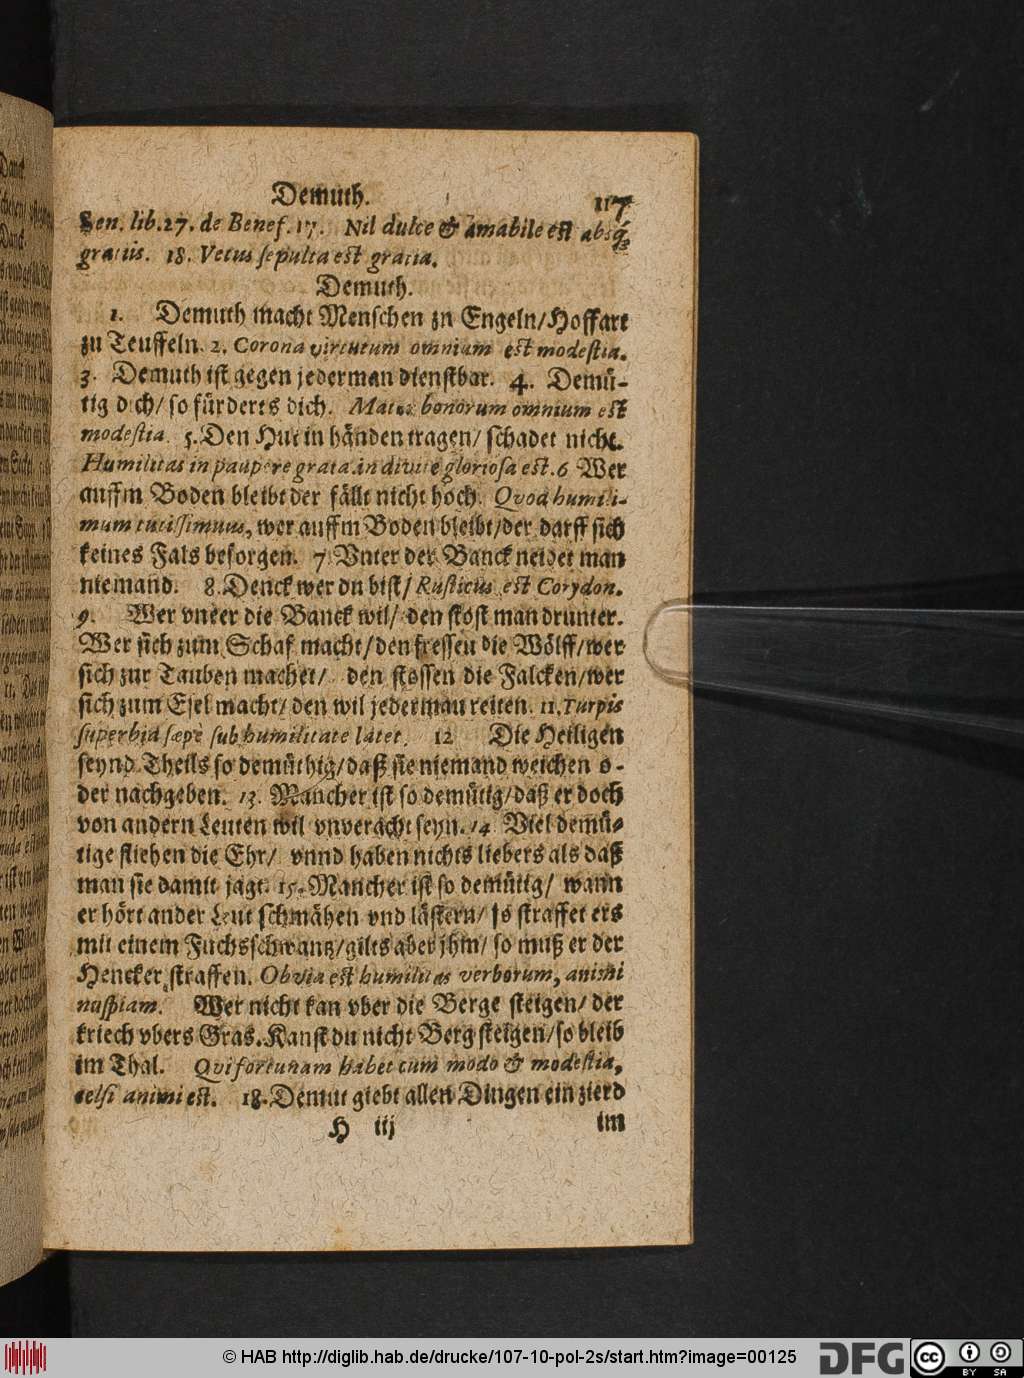 Demuth. 117
Sen. lib. 27. de Benef. 17. Nil dulce & amabile est absq;
gratiis. 18. Vetus sepulta est gratia.
Demuth.
1. Demuth macht Menschen zu Engeln/Hoffart
zu Teuffeln. 2. Corona virtutum omnium est modestia.
3. Demuth ist gegen jederman dienstbar. 4. Demü-
tig dich/ so fürderts dich. Mater bonorum omnium est
modestia. 5. Den Hut in händen tragen/ schadet nicht.
Humilitas in paupere grata, in divite gloriosa est. 6 Wer
auffm Boden bleibt der fällt nicht hoch. Qvod humili-
mum tutissimum, wer auffm Boden bleibt/der darff sich
keines Fals besorgen. 7. Vnter der Banck neidet man
niemand. 8. Denck wer du bist/ Rusticus est Corydon.
9. Wer vnter die Banck wil/ den stöst man drunter.
Wer sich zum Schaf macht/den fressen die Wölff/wer
sich zur Tauben machet/ den stossen die Falcken/wer
sich zum Esel macht/ den wil jederman reiten. 11. Turpis
superbia sæpè sub humilitate latet. 12 Die Heiligen
seynd Theils so demüthig/daß sie niemand weichen o-
der nachgeben. 13. Mancher ist so demütig/daß er doch
von andern Leuten wil vnveracht seyn. 14 Viel demü-
tige fliehen die Ehr/ vnnd haben nichts liebers als daß
man sie damit jagt. 15. Mancher ist so demütig/ wann
er hört ander Leut schmähen vnd lästern/ so straffet ers
mit einem Fuchsschwantz/gilts aber jhm/ so muß er der
Hencker straffen. Obvia est humilitas verborum, animi
nuspiam. Wer nicht kan vber die Berge steigen/ der
kriech vbers Gras. Kanst du nicht Berg steigen/so bleib
im Thal. Qui fortunam habet cum modo & modestia,
celsi animi est. 18. Demut giebt allen Dingen ein zierd
H iij im
© HAB http://diglib.hab.de/drucke/107-10-pol-2s/start.htm?image=00125
DFG
cc BY SA